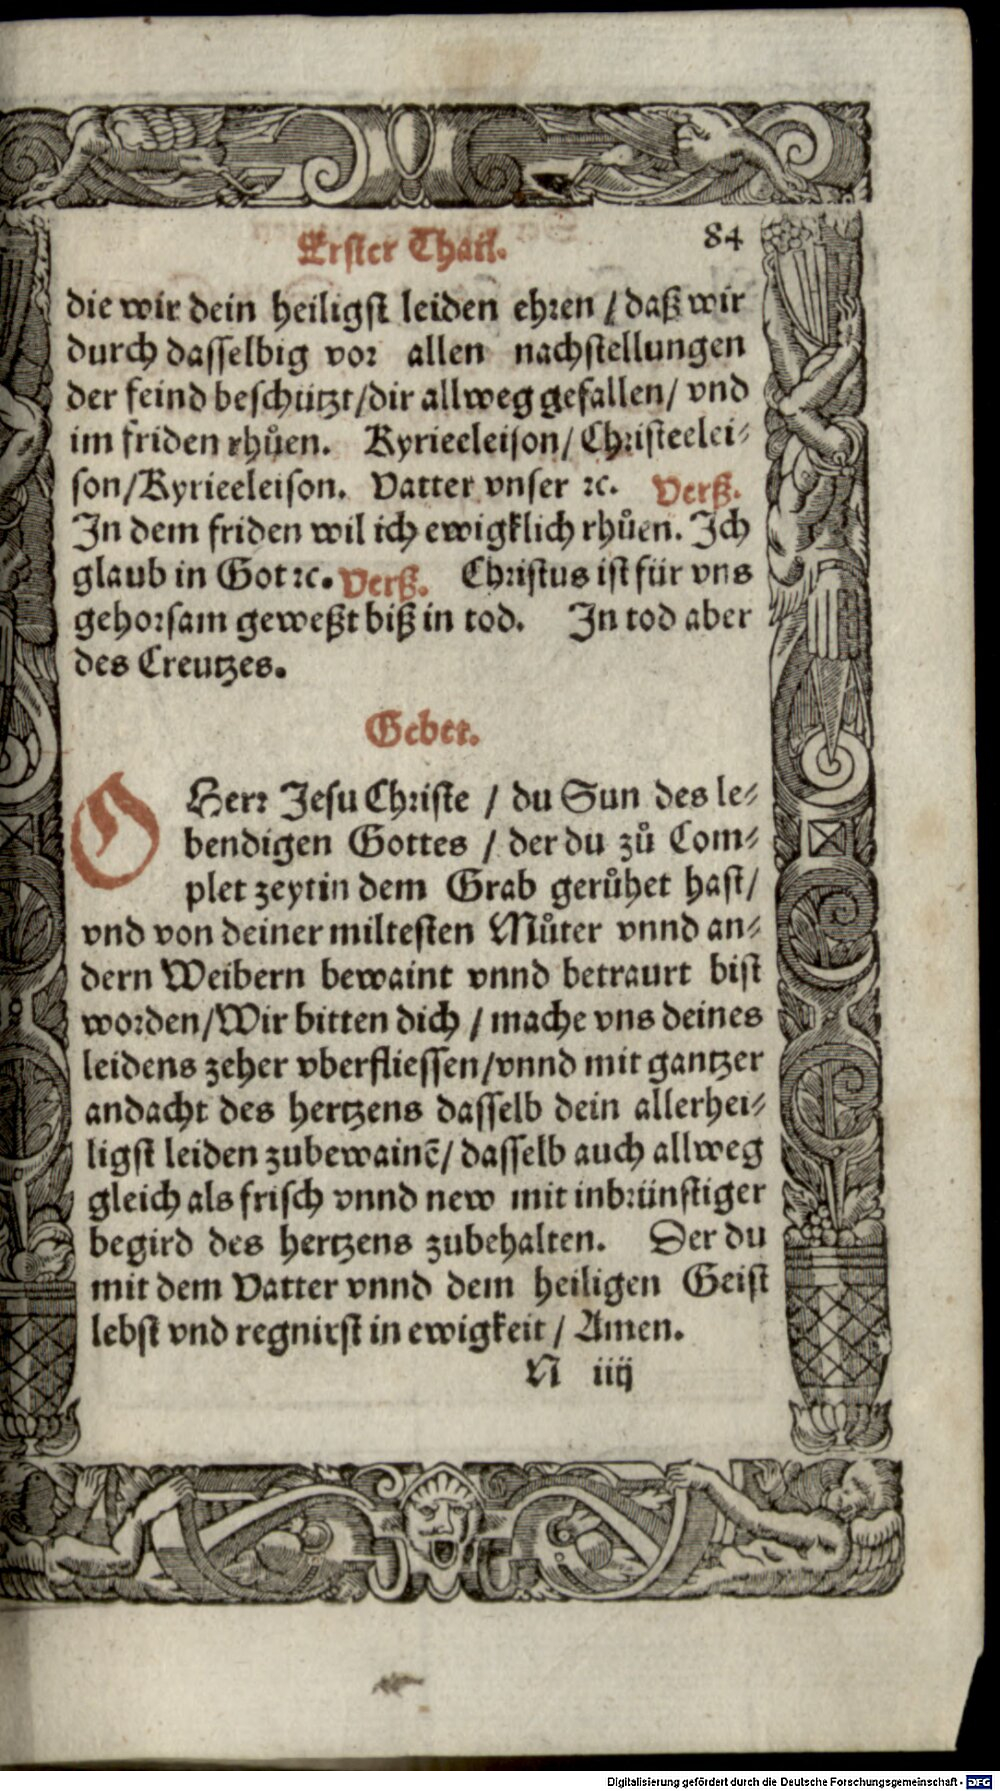 Erster Thail. 84
die wir dein heiligst leiden ehren / daß wir
durch dasselbig vor allen nachstellungen
der feind beschützt/dir allweg gefallen/ vnd
im friden rhůen. Kyrieeleison/ Christeelei⸗
son/Kyrieeleison. Vatter vnser ꝛc. Verß.
In dem friden wil ich ewigklich rhůen. Ich
glaub in Got ꝛc. Verß. Christus ist für vns
gehorsam geweßt biß in tod. In tod aber
des Creutzes.
Gebet.
O Herr Jesu Christe / du Sun des le⸗
bendigen Gottes / der du zů Com⸗
plet zeyt in dem Grab gerůhet hast/
vnd von deiner miltesten Můter vnnd an⸗
dern Weibern bewaint vnnd betraurt bist
worden/Wir bitten dich / mache vns deines
leidens zeher vberfliessen/vnnd mit gantzer
andacht des hertzens dasselb dein allerhei⸗
ligst leiden zubewainē/ dasselb auch allweg
gleich als frisch vnnd new mit inbrünstiger
begird des hertzens zubehalten. Der du
mit dem Vatter vnnd dem heiligen Geist
lebst vnd regnirst in ewigkeit / Amen.
N iiij
Digitalisierung gefördert durch die Deutsche Forschungsgemeinschaft - DFG